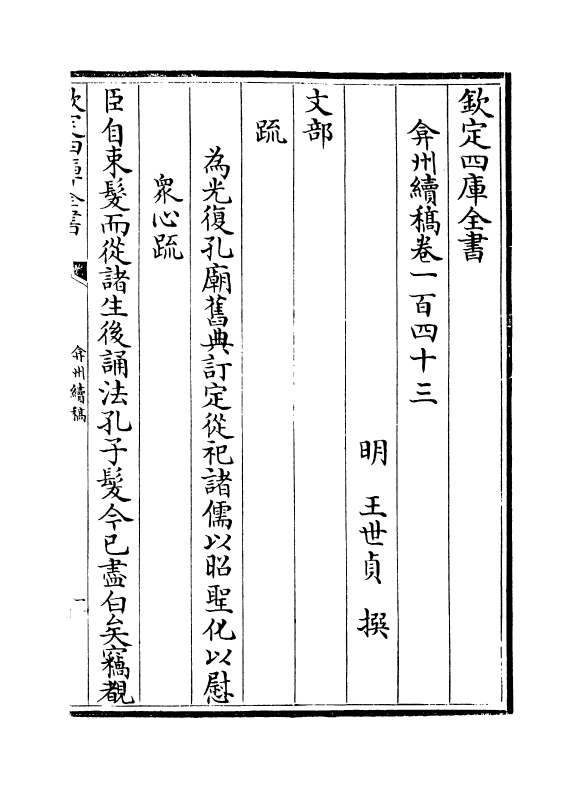 欽定四庫全書
弇州續稿卷一百四十三
明 王世貞 撰
文部
疏
為光復孔廟舊典訂定從祀諸儒以昭聖化以慰
衆心疏
臣自束髮而從諸生後誦法孔子髮今已盡白矣竊覩
欽定四庫全書
弇州續稿
一